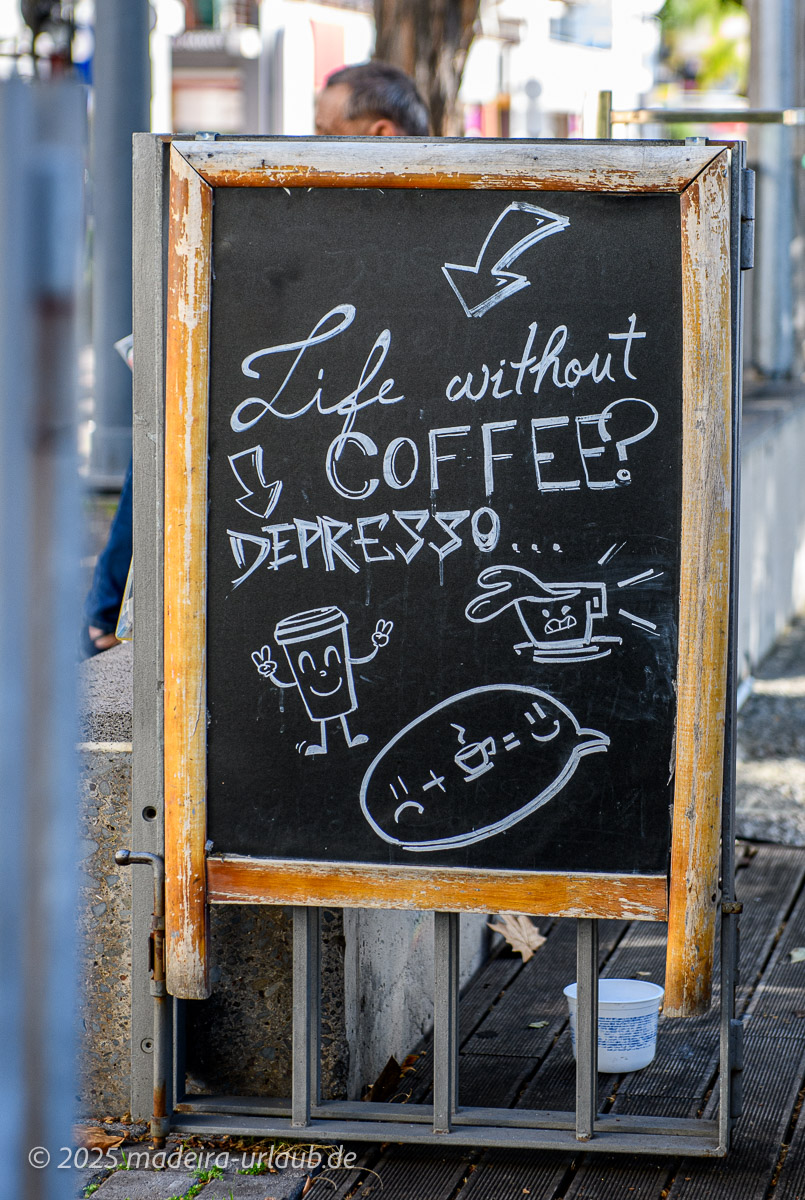 Life without
COFFEE?
DEPRESSO....
+ =
© 2025 madeira-urlaub.de